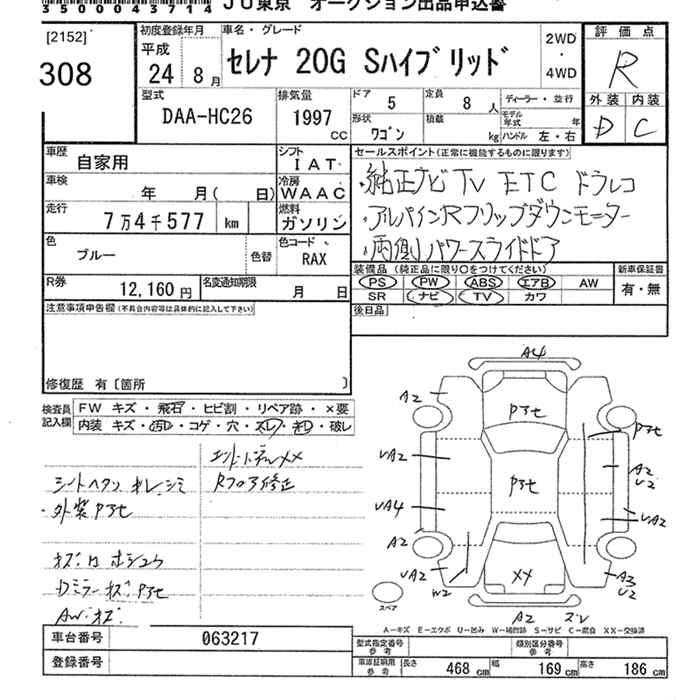 350043714 JU東京 オークション出品申込書
[2152]
308
初度登録年月
平成
24年 8月
車名・グレード
セレナ 20G Sハイブリッド
2WD
・
4WD
評価点
R
外装 内装
D C
型式
DAA-HC26
排気量
1997
cc
ドア
5
定員
8人
形状
ワゴン
積載
kg
ディーラー・並行
モデル年式 年
ハンドル 左・右
車歴
自家用
シフト
IAT
車検
年 月( 日)
冷房
WAAC
走行
7万4千577 km
燃料
ガソリン
色
ブルー
色替
色コード
RAX
R券
12,160円
名変通知期限
月 日
セールスポイント(正常に機能するものに限ります)
・純正ナビ TV ETC ドラレコ
・アルパインRフリップダウンモニター
・両側パワースライドドア
装備品 (純正品に限り○をつけてください)
PS PW ABS エアB AW
SR ナビ TV カワ
新車保証書
有・無
後日品
注意事項申告欄(不具合内容等は具体的に記入して下さい)
修復歴 有〔箇所 〕
検査員
記入欄
FW キズ・飛石・ヒビ割・リペア跡・×要
内装 キズ・汚レ・コゲ・穴・スレ・キレ・破レ
Rフロア修正
・外装アセ
A4
A2
アセ
アセ
VA2
A2
V2
アセ
VA4
VA2
A2
A2
VA2
W2
XX
A3
V2
A2
スペア
A-キズ E-エクボ U-凹み W-補修跡 S-サビ C-腐食 XX-交換済
車台番号 063217
登録番号
型式指定番号
参考
類別区分番号
参考
車庫証明用
参考
長さ 468cm 幅 169cm 高さ 186cm